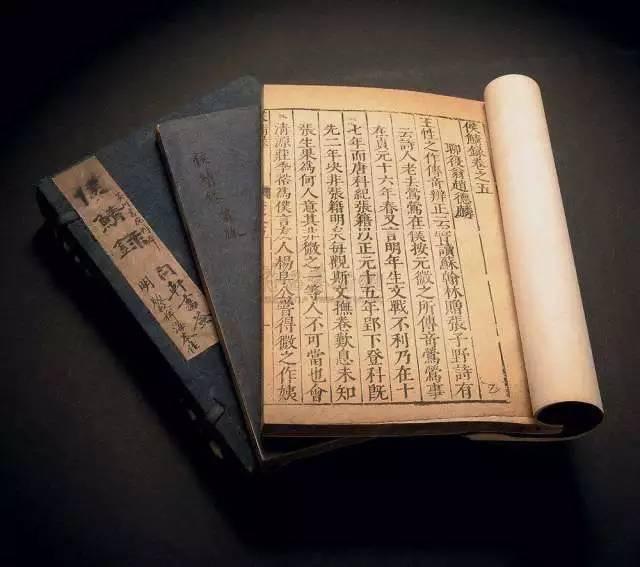 侯鯖錄卷之五
聊復翁趙德麟
王性之作傳奇辨正云嘗讀蘇翰林贈張子野詩有
云詩人老去鶯鶯在僕按元微之所傳奇鶯鶯事
在貞元十六年春又言明年生文戰不利乃在十
七年而唐科紀張籍以正元十五年郢下登科既
先二年決非張籍明矣每觀斯文撫卷歎息未知
張生果為何人意其非微之一等人不可當也會
清源莊季裕為僕言友人楊阜公嘗得微之作姨
侯鯖錄
侯鯖錄
明